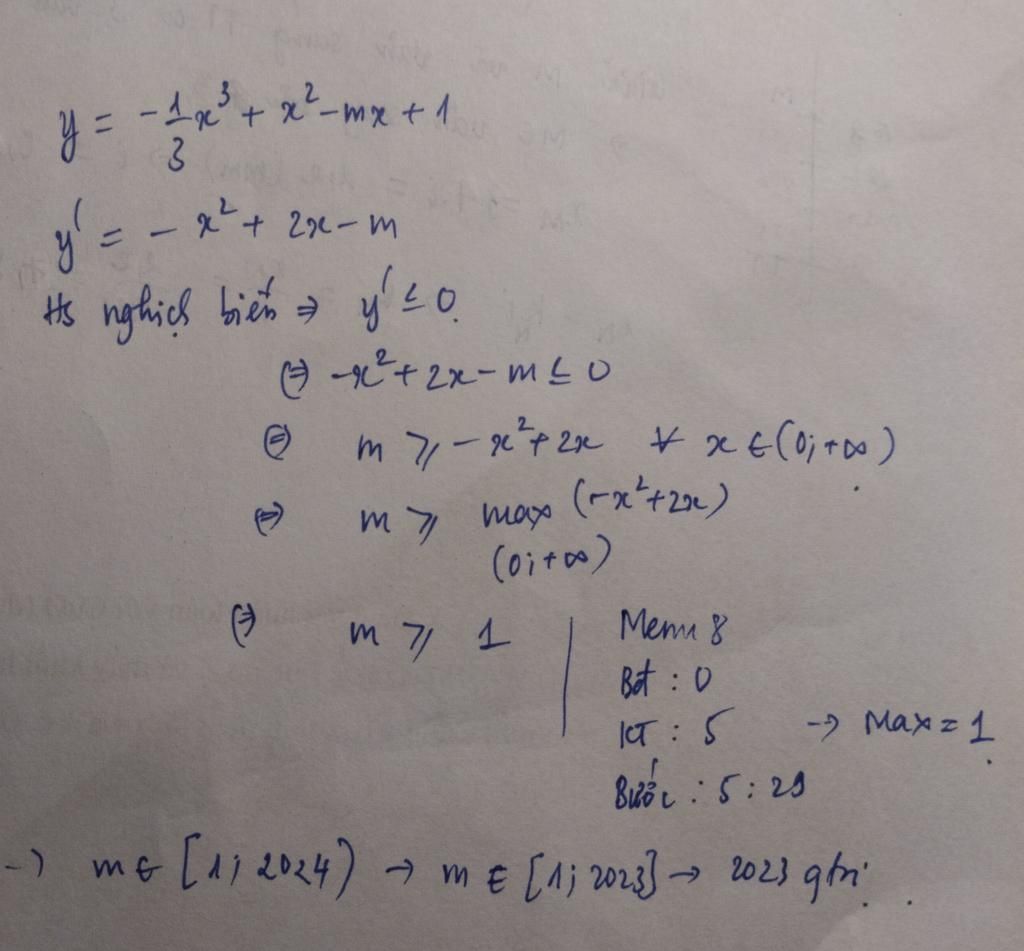 y = -1/3 x³ + x² - mx + 1
y' = - x² + 2x - m
Hs nghịch biến ⇒ y' ≤ 0.
⇔ -x² + 2x - m ≤ 0
⇔ m ≥ - x² + 2x ∀ x ∈ (0; +∞)
⇔ m ≥ max (-x² + 2x)
(0; +∞)
⇔ m ≥ 1
Menu 8
Bđ : 0
KT : 5 → Max = 1
Bước : 5 : 29
→ m ∈ [1; 2024) → m ∈ [1; 2023] → 2023 gtrị.